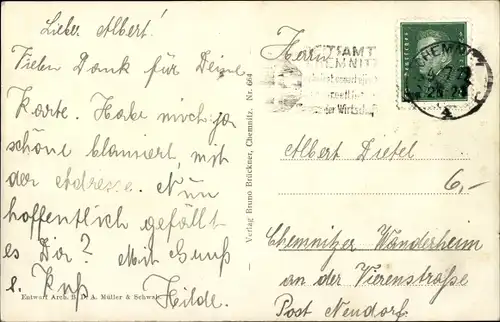 Lieber Albert!
Vielen Dank für Deine
Karte. Habe mich ja
schöne blamiert, mit
der Adresse. Nun
hoffentlich gefällt
es Dir? Mit Gruß
u. Kuß Hilde.
Entwurf Arch. B. D. A. Müller & Schwab.
Verlag Bruno Brückner, Chemnitz. Nr. 664
Herrn
TSAMT
CHEMNITZ
der Wirtschaft
CHEMNITZ
Albert Dietel
6,-
Chemnitzer Wanderheim
an der Vierenstraße
Post Neudorf